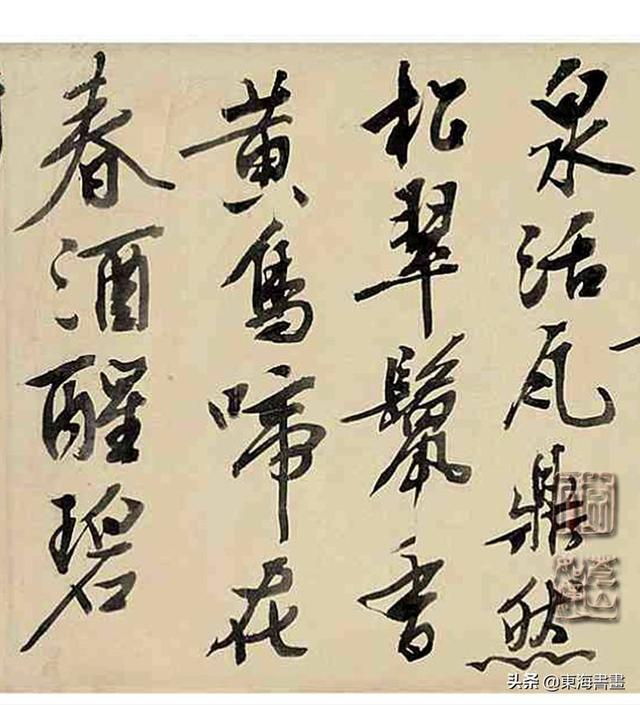 泉活瓦鼎然
松翠鬣香
黄鳥啼花
春酒醒碧
头条 @東海書畫